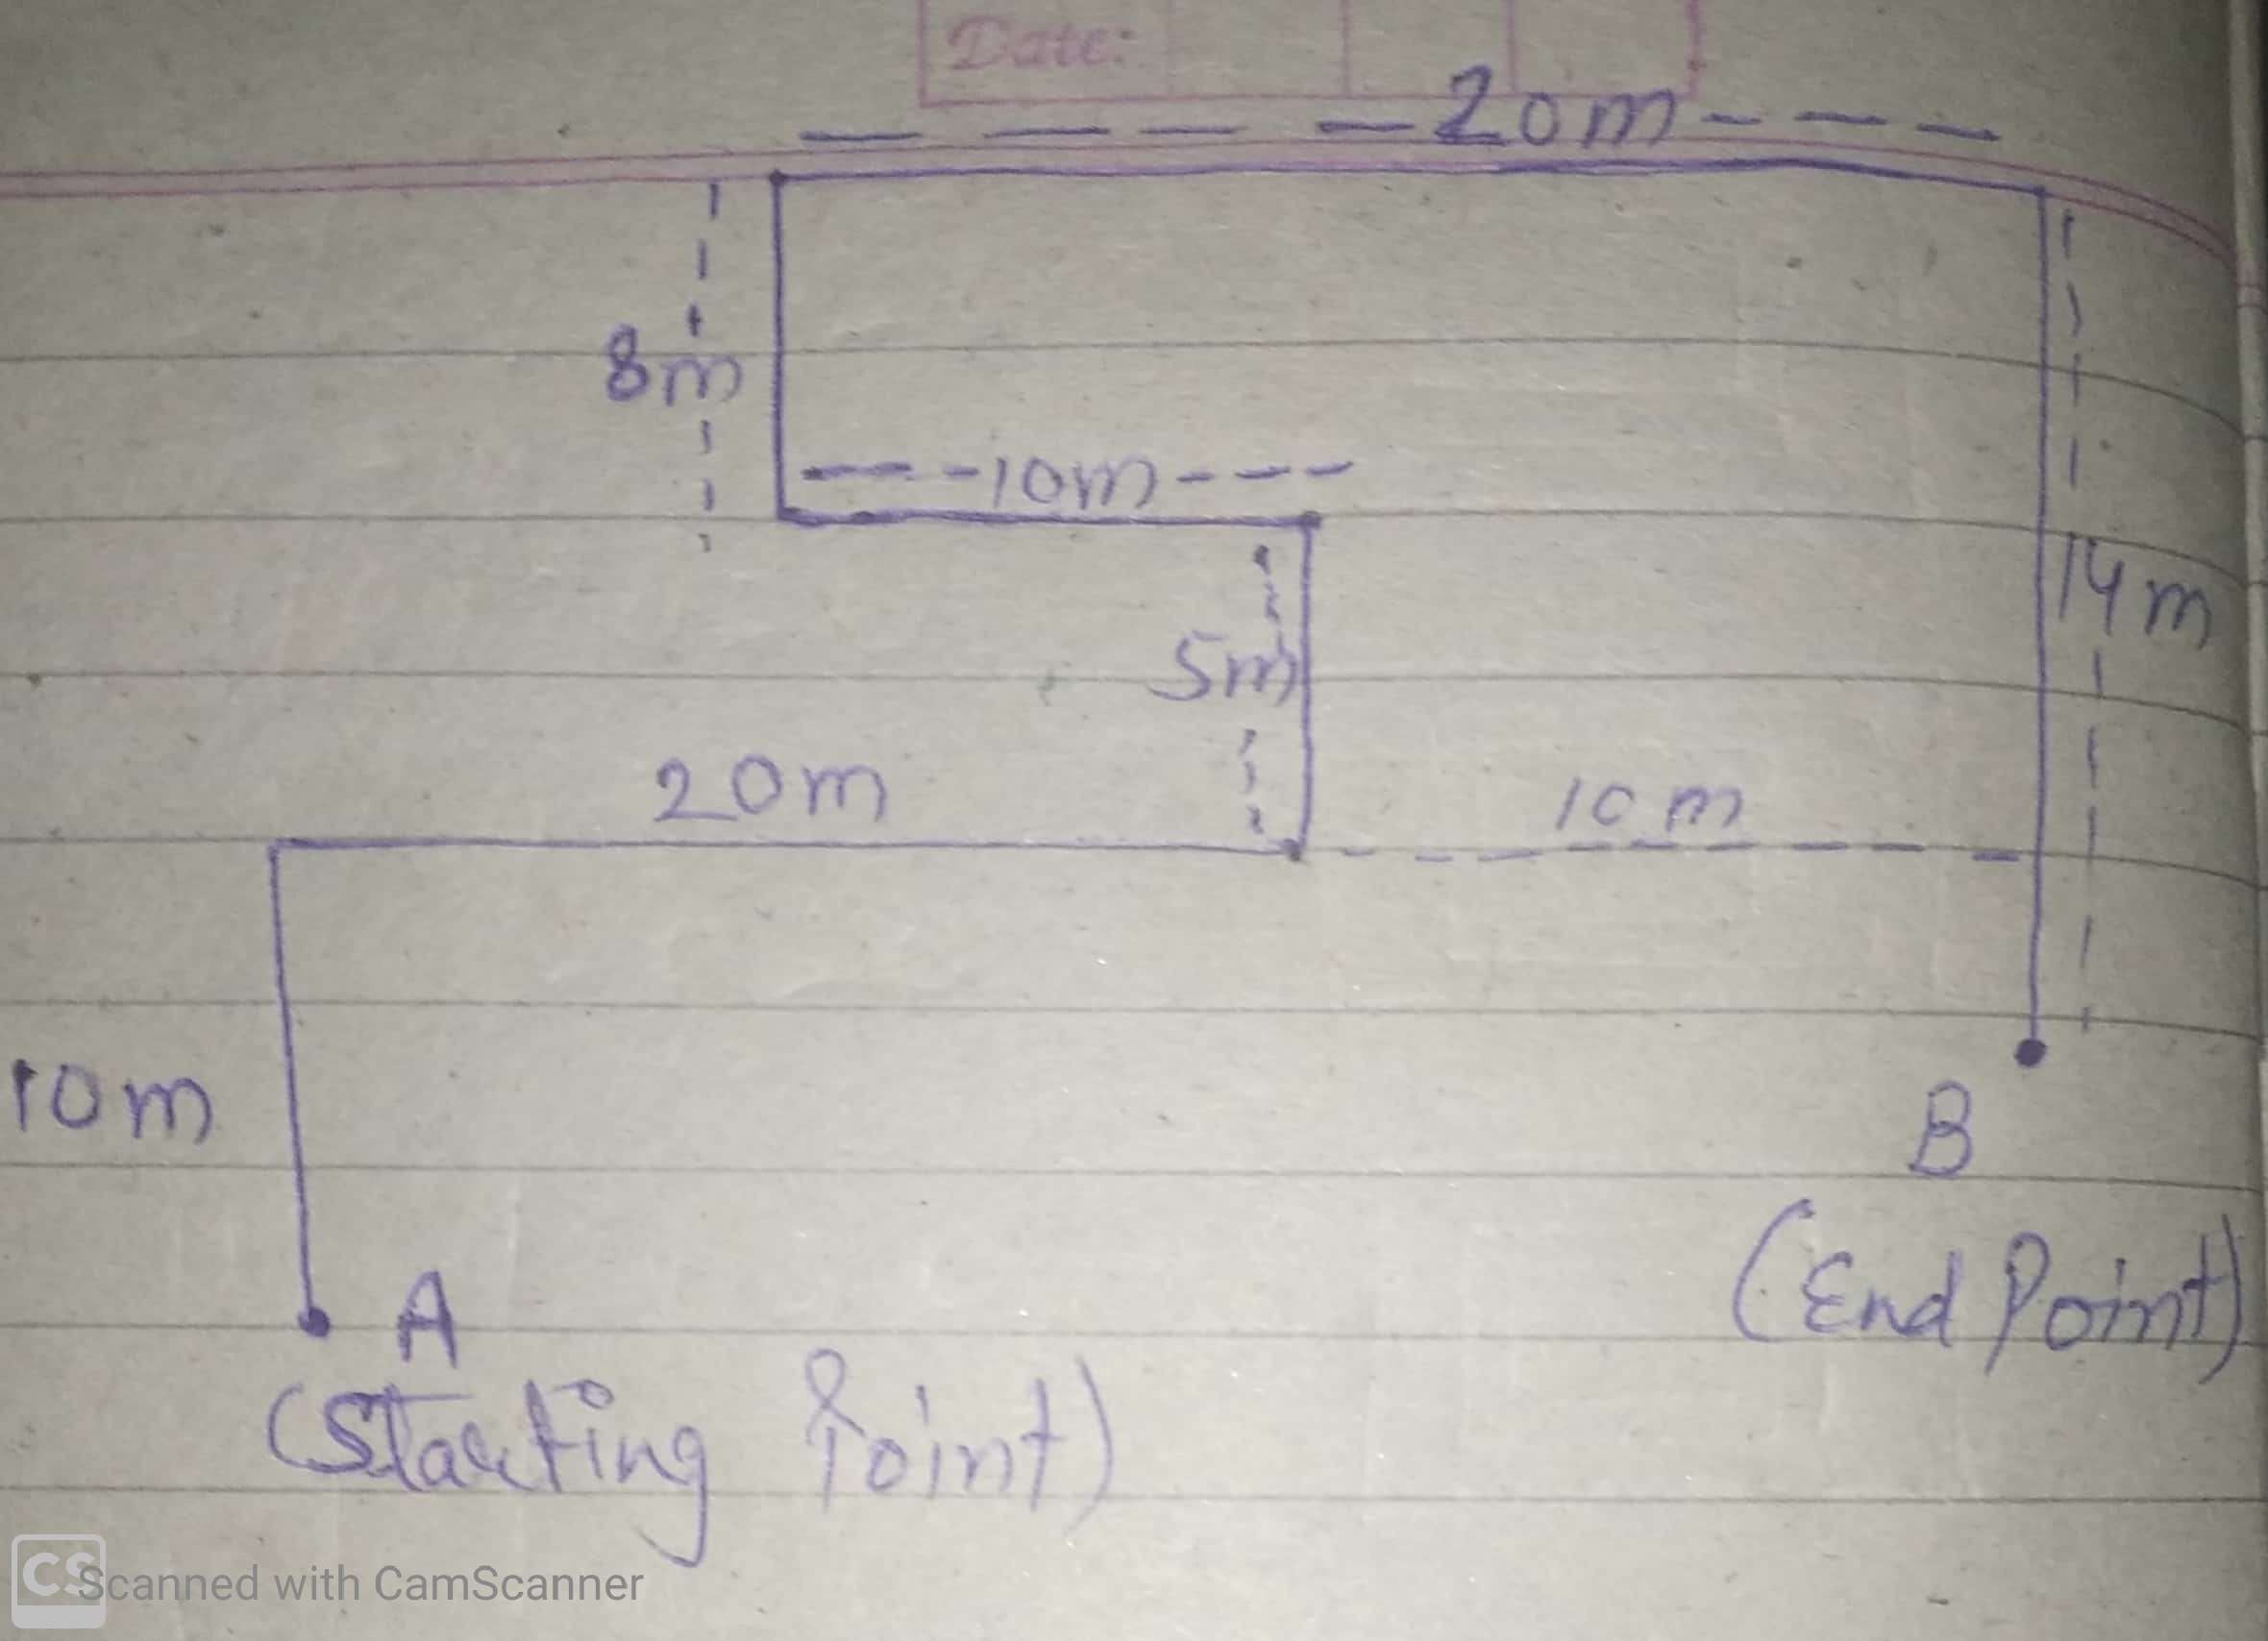 Date:
20m
8m
10m
14m
5m
20m
10m
10m
B
A
(End Point)
(Starting Point)
CS Scanned with CamScanner